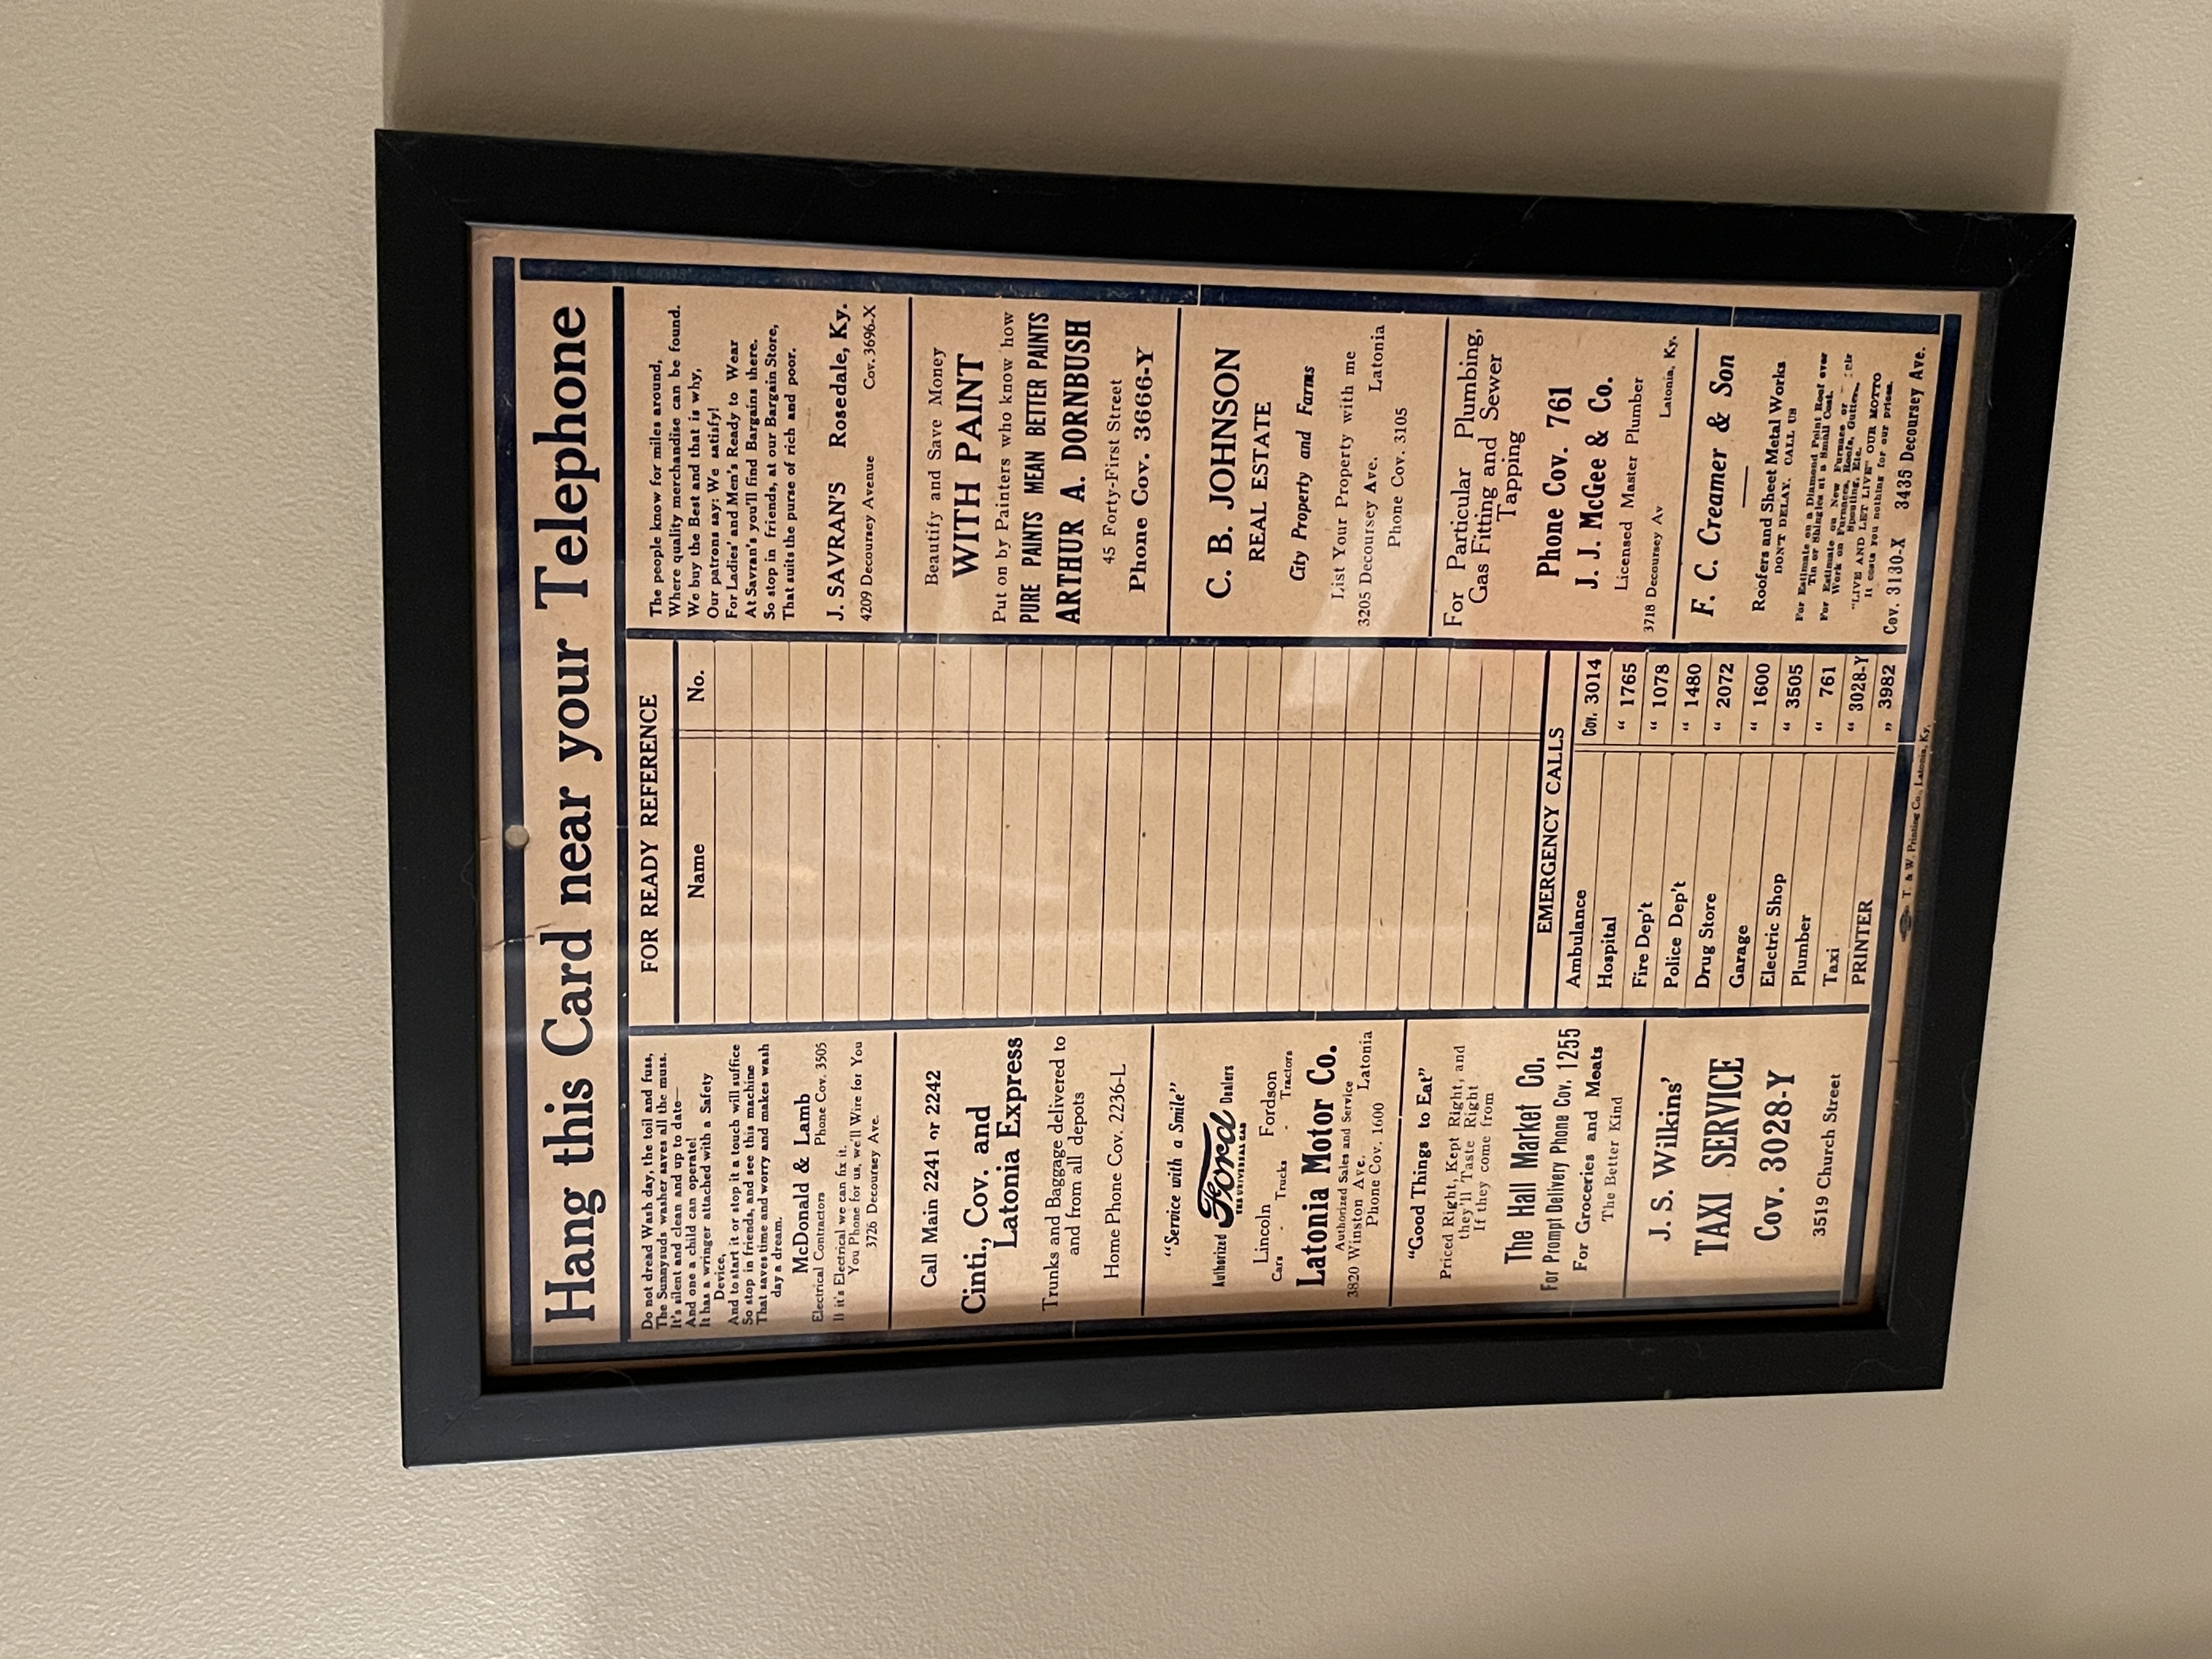 Hang this Card near your Telephone
Do not dread Wash day, the toil and fuss,
The Sunnysuds washer saves all the muss.
It's silent and clean and up to date—
And one a child can operate!
It has a wringer attached with a Safety
Device,
And to start it or stop it a touch will suffice
So stop in friends, and see this machine
That saves time and worry and makes wash
day a dream.
McDonald & Lamb
Electrical Contractors Phone Cov. 3505
If it's Electrical we can fix it.
You Phone for us, we'll Wire for You
3726 Decoursey Ave.
Call Main 2241 or 2242
Cinti., Cov. and
Latonia Express
Trunks and Baggage delivered to
and from all depots
Home Phone Cov. 2236-L
"Service with a Smile"
Authorized Ford Dealers
THE UNIVERSAL CAR
Lincoln Fordson
Cars - Trucks - Tractors
Latonia Motor Co.
Authorized Sales and Service
3820 Winston Ave. Latonia
Phone Cov. 1600
"Good Things to Eat"
Priced Right, Kept Right, and
they'll Taste Right
If they come from
The Hall Market Co.
For Prompt Delivery Phone Cov. 1255
For Groceries and Meats
The Better Kind
J. S. Wilkins'
TAXI SERVICE
Cov. 3028-Y
3519 Church Street
FOR READY REFERENCE
Name No.
EMERGENCY CALLS
Ambulance Cov. 3014
Hospital " 1765
Fire Dep't " 1078
Police Dep't " 1480
Drug Store " 2072
Garage " 1600
Electric Shop " 3505
Plumber " 761
Taxi " 3028-Y
PRINTER " 3982
The people know for miles around,
Where quality merchandise can be found.
We buy the Best and that is why,
Our patrons say: We satisfy!
For Ladies' and Men's Ready to Wear
At Savran's you'll find Bargains there.
So stop in friends, at our Bargain Store,
That suits the purse of rich and poor.
J. SAVRAN'S Rosedale, Ky.
4209 Decoursey Avenue Cov. 3696-X
Beautify and Save Money
WITH PAINT
Put on by Painters who know how
PURE PAINTS MEAN BETTER PAINTS
ARTHUR A. DORNBUSH
45 Forty-First Street
Phone Cov. 3666-Y
C. B. JOHNSON
REAL ESTATE
City Property and Farms
List Your Property with me
3205 Decoursey Ave. Latonia
Phone Cov. 3105
For Particular Plumbing,
Gas Fitting and Sewer
Tapping
Phone Cov. 761
J. J. McGee & Co.
Licensed Master Plumber
3718 Decoursey Av Latonia, Ky.
F. C. Creamer & Son
Roofers and Sheet Metal Works
DON'T DELAY. CALL US
For Estimate on a Diamond Point Roof over
Tin or Shingles at a Small Cost.
For Estimate on New Furnace or
Work on Furnaces, Roofs, Gutters,
Spouting, Etc.
"LIVE AND LET LIVE" OUR MOTTO
It costs you nothing for our prices.
Cov. 3130-X 3435 Decoursey Ave.
T. & W. Printing Co., Latonia, Ky.